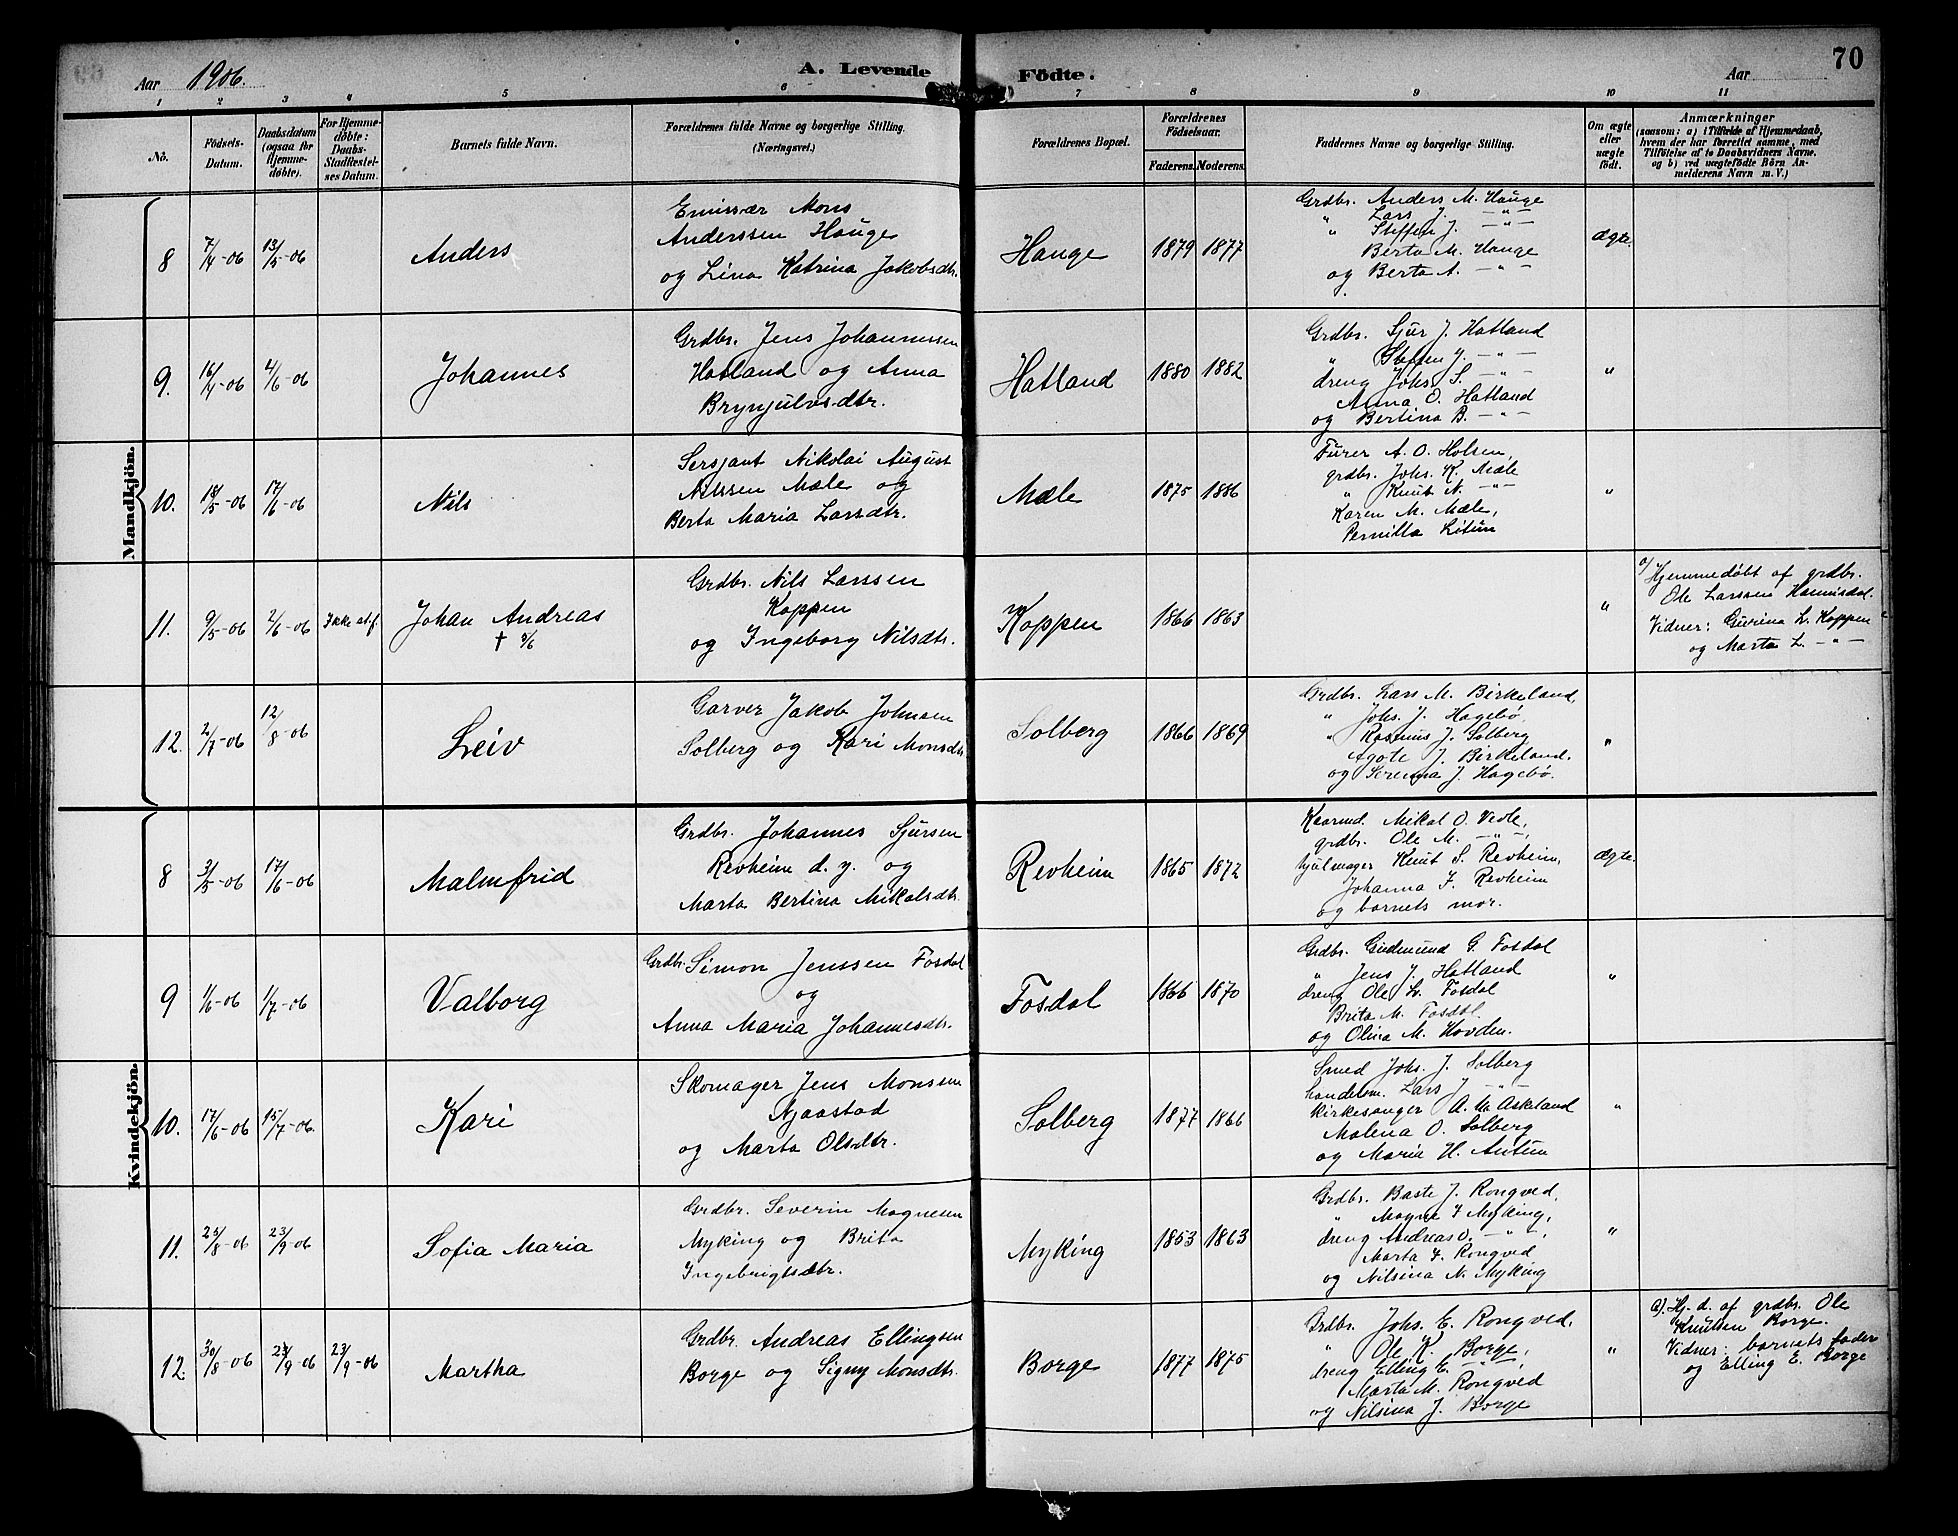 Aar 1906.
A. Levende Födte.
Aar
70
1 2 3 4 5 6 7 8 9 10 11
No.
Födsels-Datum.
Daabsdatum (ogsaa for Hjemme-döbte).
For Hjemme-döbte: Daabs-Stadfæstel-ses Datum.
Barnets fulde Navn.
Forældrenes fulde Navne og borgerlige Stilling.
(Næringsvei.)
Forældrenes Bopæl.
Forældrenes Födselsaar.
Faderens. Moderens.
Faddernes Navne og borgerlige Stilling.
Om ægte eller uægte födt.
Anmærkninger
(saasom: a) i Tilfælde af Hjemmedaab, hvem der har forrettet samme, med Tilföielse af to Daabsvidners Navne, og b) ved uægtefödte Börn Anmelderens Navn m. V.)
Mandkjön.
8 7/4-06 13/5-06 Anders
Emissær Mons
Anderssen Hauge
og Lina Katrina Jakobsdtr.
Hauge 1879 1877
Grdbr. Anders M. Hauge
" Lars J. -"-
" Steffen J. -"-
Berta M. Hauge
og Berta A. -"-
ægte.
9. 16/4-06 4/6-06 Johannes
Grdbr. Jens Johannessen
Hatland og Anna
Brynjulvsdtr.
Hatland 1880 1882
Grdbr. Sjur J. Hatland
" Steffen J. -"-
dreng Johs. S. -"-
Anna O. Hatland
og Bertina B. -"-
"
10. 18/5-06 17/6-06 Nils
Sersjant Nikolai August
Nilssen Mæle og
Berta Maria Larsdtr.
Mæle 1875 1886
Furer A. O. Holsen,
grdbr. Johs. K. Mæle
" Knut N. -"-
Karen M. Mæle,
Pernilla Litun
"
11. 9/5-06 2/6-06 Ikke st.f. Johan Andreas
Grdbr. Nils Larssen
Koppen
og Ingeborg Nilsdtr.
Koppen 1866 1863
"
a) Hjemmedøbt af grdbr.
Ole Larssen
Vidner: Gurina L. Koppen
og Marta L. -"-
12. 2/7-06 12/8-06 Leiv
Garver Jakob Johnsen
Solberg og Kari Monsdtr.
Solberg 1866 1869
Grdbr. Lars M. Birkeland,
" Johs. J. Hagebø,
" Rasmus J. Solberg
Agate J. Birkeland,
og Serina J. Hagebø.
"
Kvindekjön.
8 3/5-06 17/6-06 Malmfrid
Grdbr. Johannes Sjursen
Revheim d. y. og
Marta Bertina Mikalsdtr.
Revheim 1865 1872
Kaarmd. Mikal O. Vedle,
grdbr. Ole M. -"-,
hjulmager Knut S. Revheim,
Johanna J. Revheim
og barnets mor.
ægte.
9 1/6-06 1/7-06 Valborg
Grdbr. Simon Jenssen Fosdal
og
Anna Maria Johannesdtr.
Fosdal 1866 1870
Grdbr. Gudmund G. Fosdal
" Jens J. Hatland
dreng Ole S. Fosdal
Brita M. Fosdal
og Olina M. Hovden.
"
10. 17/6-06 15/7-06 Kari
Skomager Jens Monsen
Njaastad
og Marta Olsdtr.
Solberg 1877 1866
Smed Johs. J. Solberg
handelsm. Lars J. -"-
kirkesanger A. M. Askeland
Malena O. Solberg
og Maria H. Antun
"
11. 25/8-06 23/9-06 Sofia Maria
Grdbr. Severin Magnesen
Myking og Brita
Ingebrigtsdtr.
Myking 1853 1863
Grdbr. Baste J. Rongved,
" Magne J. Myking,
dreng Andreas O. -"-,
Marta J. Rongved
og Nilsina N. Myking
"
12 30/8-06 23/9-06 23/9-06 Martha
Grdbr. Andreas Ellingsen
Borge og Signy Monsdtr.
Borge 1877 1875
Grdbr. Johs. E. Rongved,
" Ole K. Borge,
dreng Elling E. -"-,
Marta M. Rongved
og Nilsina J. Borge
"
a). Hj. d. af grdbr. Ole
Knutsen Borge.
Vidner: barnets fader
og Elling E. Borge